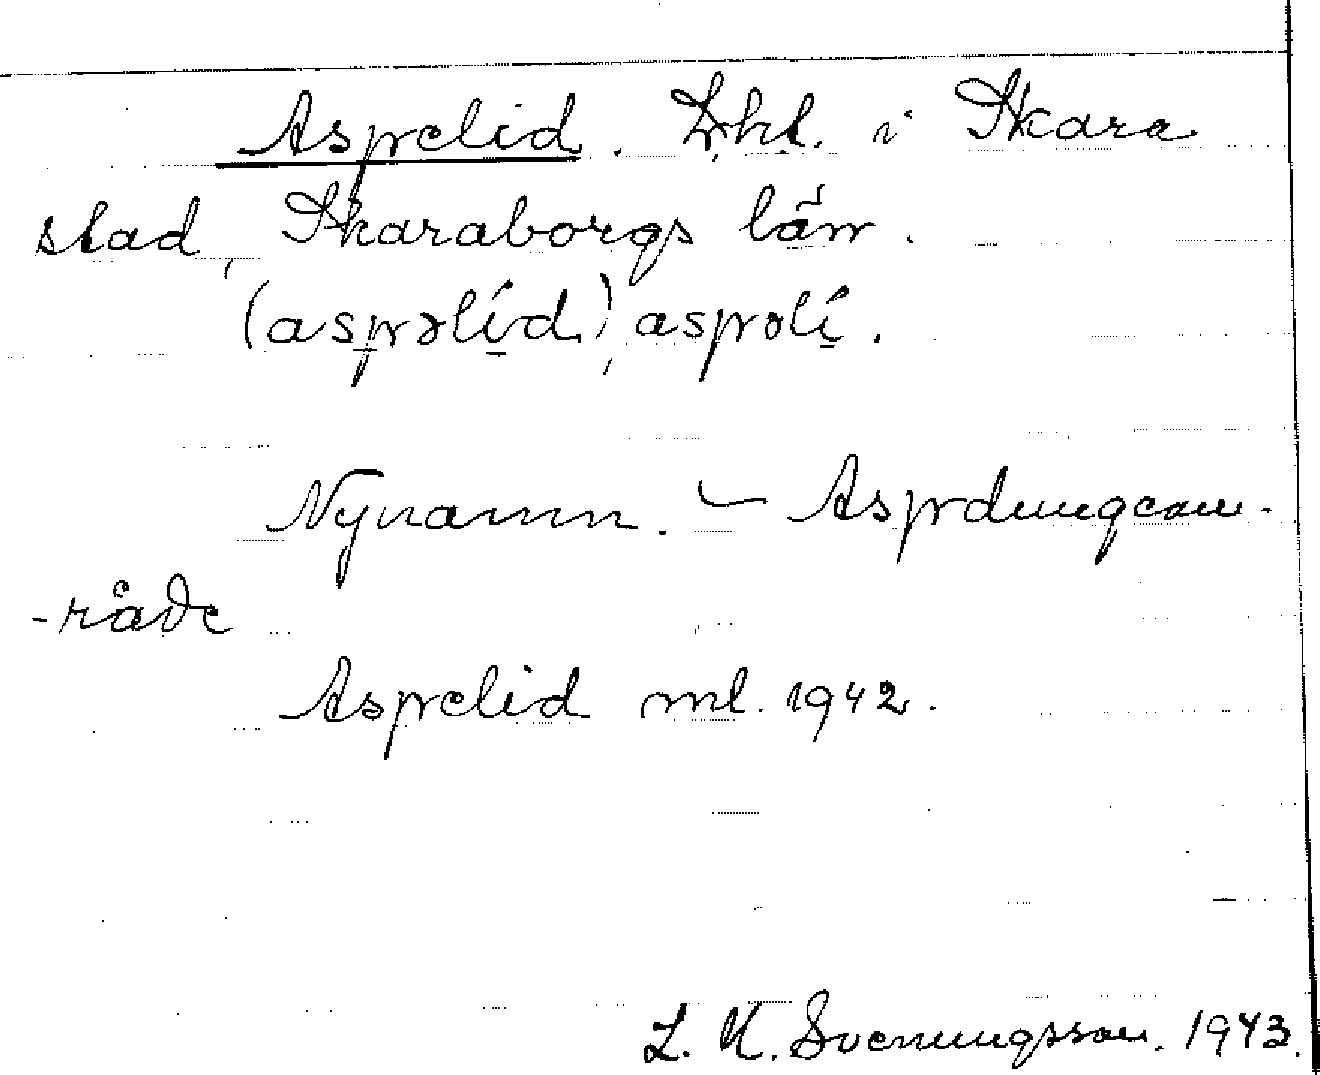 Aspelid. Lht. i Skara
stad, Skaraborgs län.
(aspəlíd), aspəlí.
Nynamn. – Aspdungeom-
-råde
Aspelid ml. 1942.
L. K. Svenungsson. 1943.